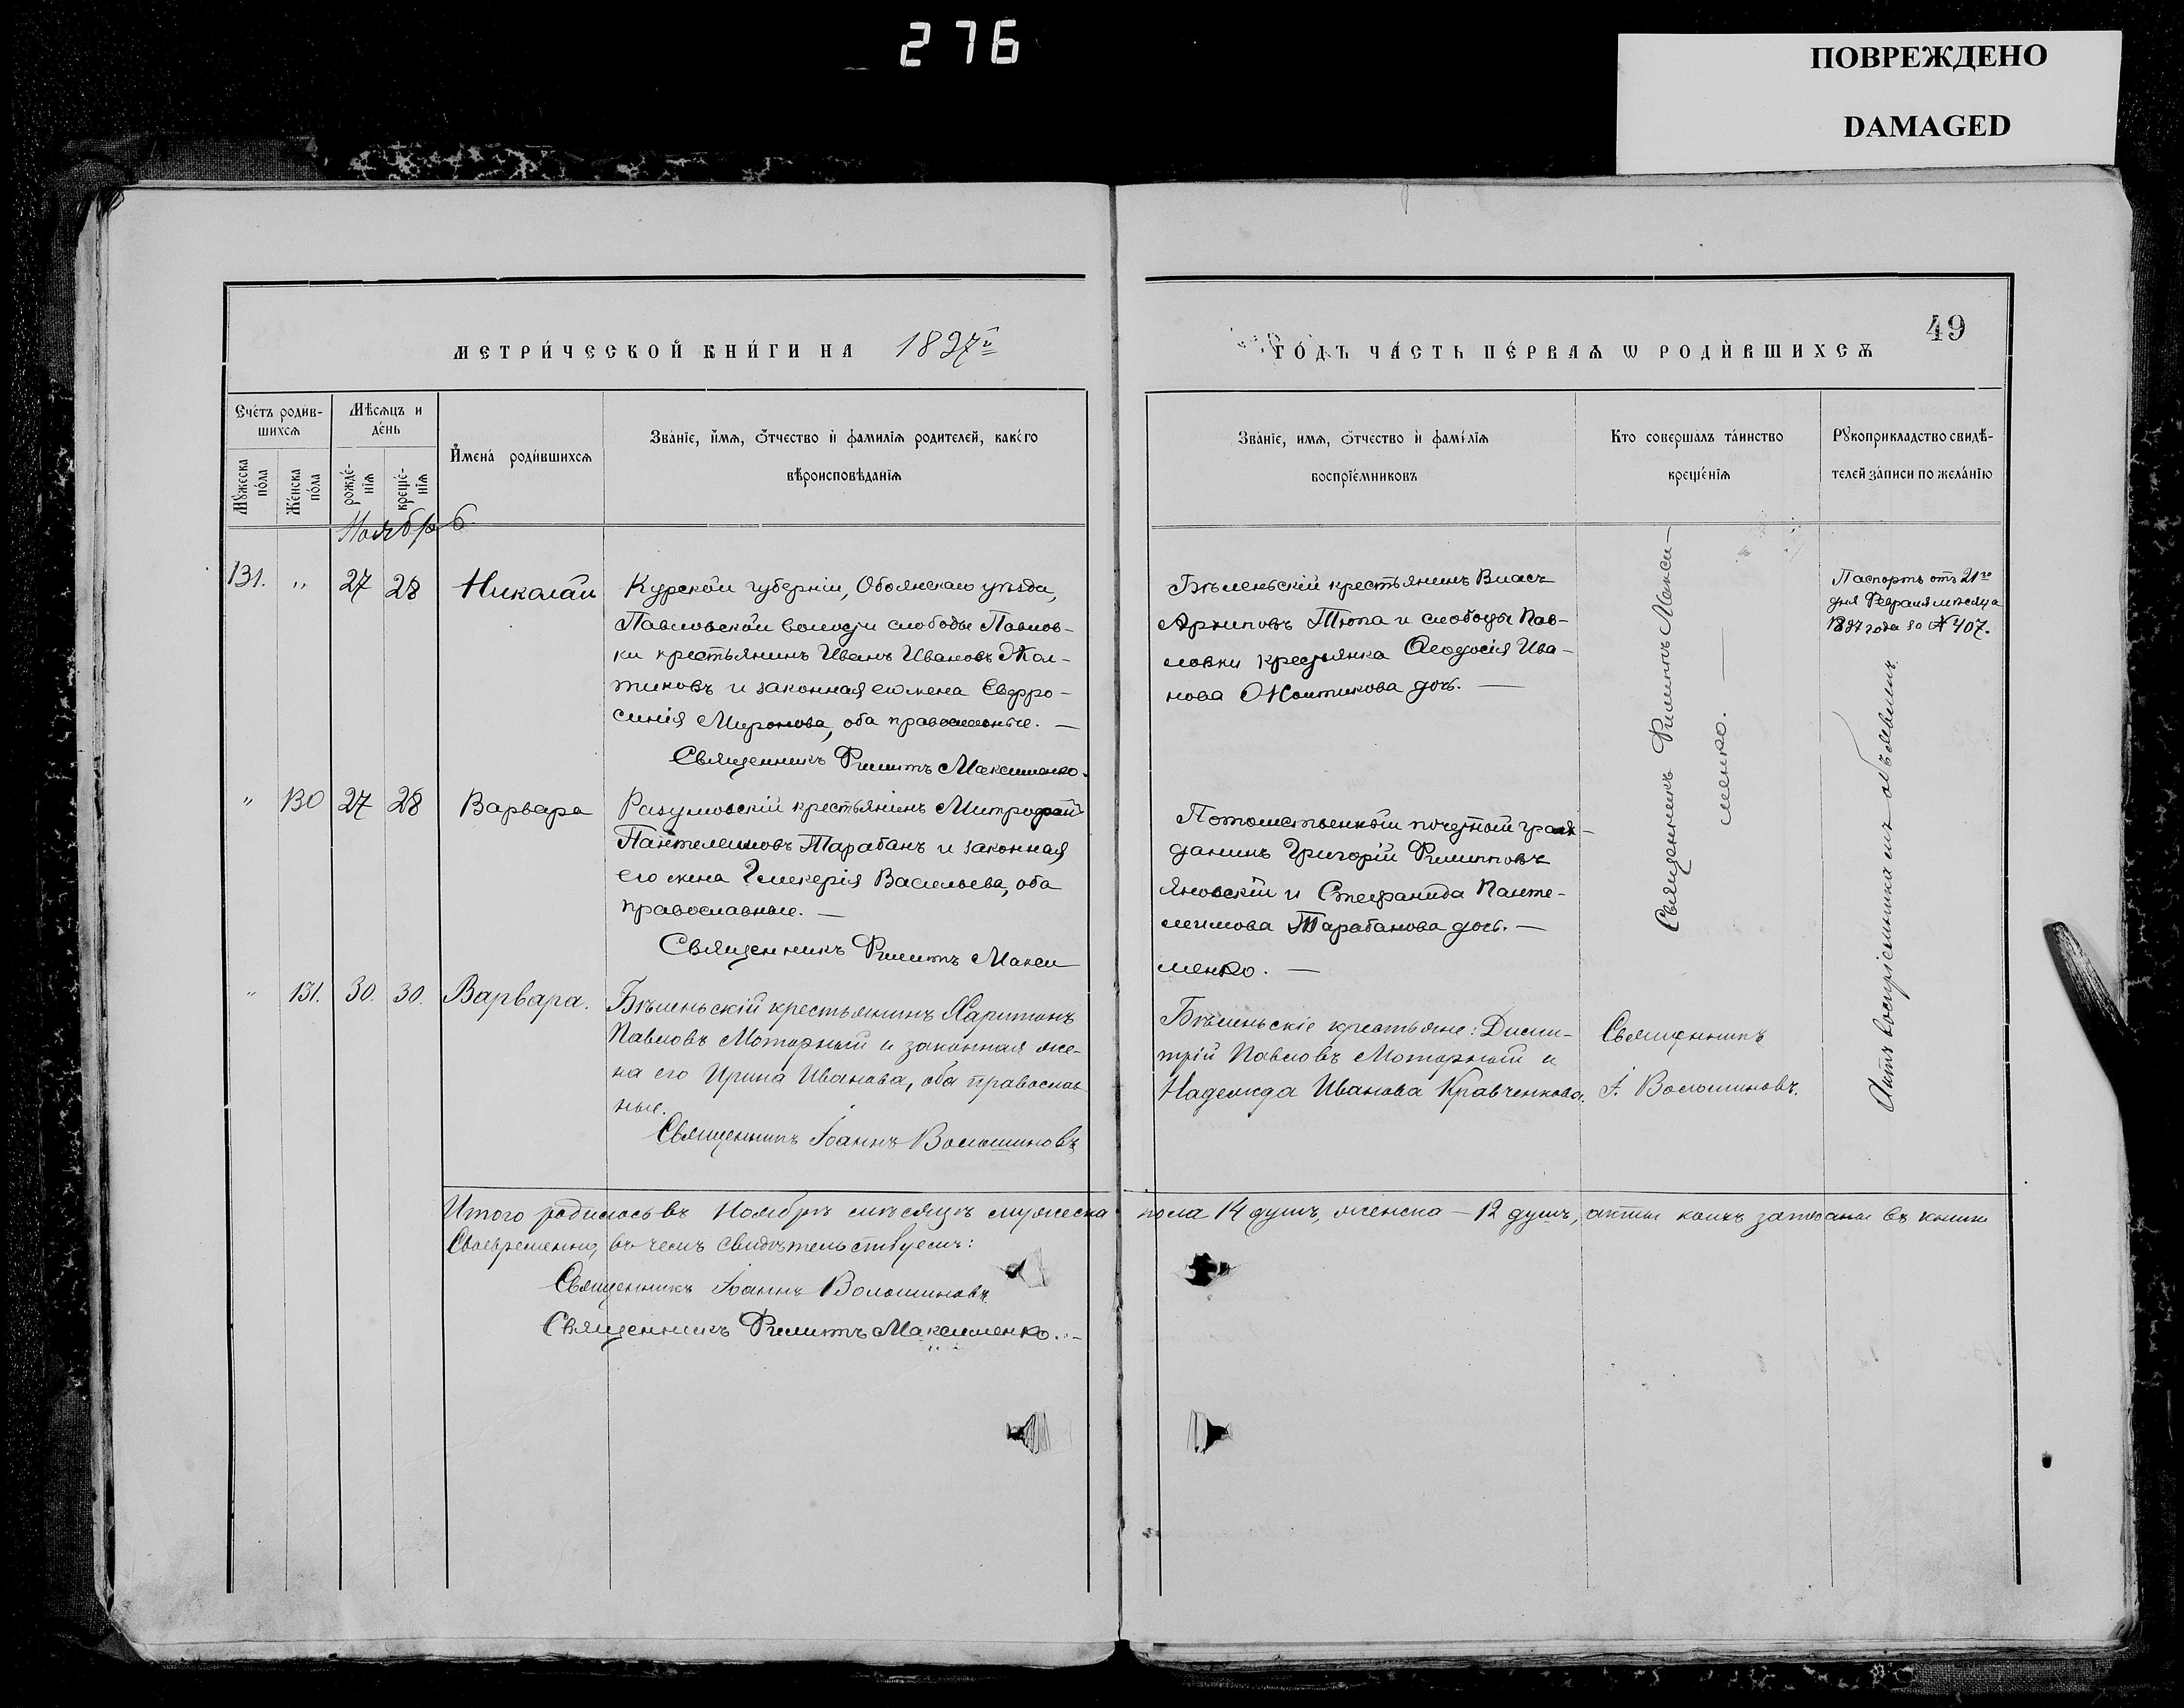 276
ПОВРЕЖДЕНО
DAMAGED
49
МЕТРИ́ЧЕСКОЙ КНИ́ГИ НА 1897й
ГО́ДЪ ЧА́СТЬ ПЕ́РВАѦ Ѡ РОДИ́ВШИХСѦ
Счетъ роди́в-
шихсѧ
Мѣсѧцъ и
де́нь
Мꙋжеска
по́ла
Же́нска
по́ла
рожде́-
нїѧ
креще́-
нїѧ
И҆мена̀ роди́вшихсѧ
Зва́нїе, и҆́мѧ, ѻ҆́тчество и҆ фамилїѧ родителей, како́го
вѣроисповѣданїѧ
Зва́нїе, имѧ, ѻ҆́тчество и҆ фамі́лїѧ
воспрїе́мниковъ
Кто совершалъ та́инство
креще́нїѧ
Рꙋкоприкладство свидѣ-
телей за́писи по жела́нїю
Ноябрь
131. „ 27 28 Николай
Курской губерніи, Обоянскаго уѣзда,
Павловской волости слободы Павлов-
ки крестьянинъ Иванъ Ивановъ Жол-
тиковъ и законная его жена Евфро-
синія Миронова, оба православные. —
Священникъ Филиппъ Максименко.
Бѣленьскій крестьянинъ Власъ
Архиповъ Тюпа и слободы Пав-
ловки крестьянка Ѳеодосія Ива-
нова Жолтикова дочь. —
Священникъ Филиппъ Макси-
менко. —
Паспортъ отъ 21го
дня Февраля мѣсяца
1897 года за № 407.
Актъ воспріемникамъ объявленъ
„ 130 27 28 Варвара
Разумовскій крестьянинъ Митрофанъ
Пантелеимовъ Тарабанъ и законная
его жена Гликерія Васильева, оба
православные. —
Священникъ Филиппъ Макси
менко. —
Потомственный почетный граж-
данинъ Григорій Филипповъ
Яновскій и Стефанида Панте-
леимова Тарабанова дочь. —
„ 131. 30. 30. Варвара.
Бѣленьскій крестьянинъ Харитонъ
Павловъ Моторный и законная же-
на его Ирина Иванова, оба православ
ные.
Священникъ Іоаннъ Волошиновъ
Бѣленьскіе крестьяне: Дими-
трій Павловъ Моторный и
Надежда Иванова Кравченкова.
Священникъ
І. Волошиновъ.
Итого родилось въ Ноябрѣ мѣсяцѣ мужеска пола 14 душъ, женска — 12 душъ, акты коихъ записаны въ книги
Своевременно, въ чемъ свидѣтельствуемъ:
Священникъ Іоаннъ Волошиновъ.
Священникъ Филиппъ Максименко. —